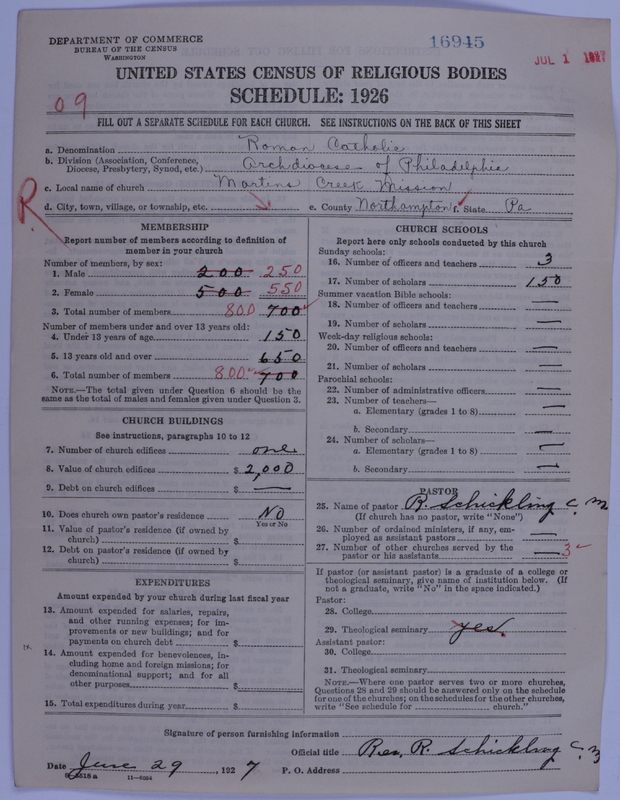 DEPARTMENT OF COMMERCE
BUREAU OF THE CENSUS
WASHINGTON
16945
JUL 1 1927
UNITED STATES CENSUS OF RELIGIOUS BODIES
SCHEDULE: 1926
09
FILL OUT A SEPARATE SCHEDULE FOR EACH CHURCH. SEE INSTRUCTIONS ON THE BACK OF THIS SHEET
a. Denomination Roman Catholic
b. Division (Association, Conference, Diocese, Presbytery, Synod, etc.) Archdiocese of Philadelphia
c. Local name of church Martins Creek Mission
d. City, town, village, or township, etc. e. County Northampton f. State Pa
R
MEMBERSHIP
Report number of members according to definition of
member in your church
Number of members, by sex:
1. Male 200 250
2. Female 500 550
3. Total number of members 800 700
Number of members under and over 13 years old:
4. Under 13 years of age 150
5. 13 years old and over 650
6. Total number of members 800 700
NOTE.—The total given under Question 6 should be the
same as the total of males and females given under Question 3.
CHURCH BUILDINGS
See instructions, paragraphs 10 to 12
7. Number of church edifices one
8. Value of church edifices $ 2,000
9. Debt on church edifices $ —
10. Does church own pastor's residence No
Yes or No
11. Value of pastor's residence (if owned by
church) $
12. Debt on pastor's residence (if owned by
church) $
EXPENDITURES
Amount expended by your church during last fiscal year
13. Amount expended for salaries, repairs,
and other running expenses; for im-
provements or new buildings; and for
payments on church debt $
14. Amount expended for benevolences, in-
cluding home and foreign missions; for
denominational support; and for all
other purposes $
15. Total expenditures during year $
CHURCH SCHOOLS
Report here only schools conducted by this church
Sunday schools:
16. Number of officers and teachers 3
17. Number of scholars 150
Summer vacation Bible schools:
18. Number of officers and teachers —
19. Number of scholars —
Week-day religious schools:
20. Number of officers and teachers —
21. Number of scholars —
Parochial schools:
22. Number of administrative officers —
23. Number of teachers—
a. Elementary (grades 1 to 8) —
b. Secondary —
24. Number of scholars—
a. Elementary (grades 1 to 8) —
b. Secondary —
PASTOR
25. Name of pastor R. Schickling C. M
(If church has no pastor, write "None")
26. Number of ordained ministers, if any, em-
ployed as assistant pastors —
27. Number of other churches served by the
pastor or his assistants — 3
If pastor (or assistant pastor) is a graduate of a college or
theological seminary, give name of institution below. (If
not a graduate, write "No" in the space indicated.)
Pastor:
28. College
29. Theological seminary yes.
Assistant pastor:
30. College
31. Theological seminary
NOTE.—Where one pastor serves two or more churches,
Questions 28 and 29 should be answered only on the schedule
for one of the churches; on the schedules for the other churches,
write "See schedule for church."
Signature of person furnishing information
Official title Rev. R. Schickling C. M
Date June 29, 1927 P. O. Address
11—8024